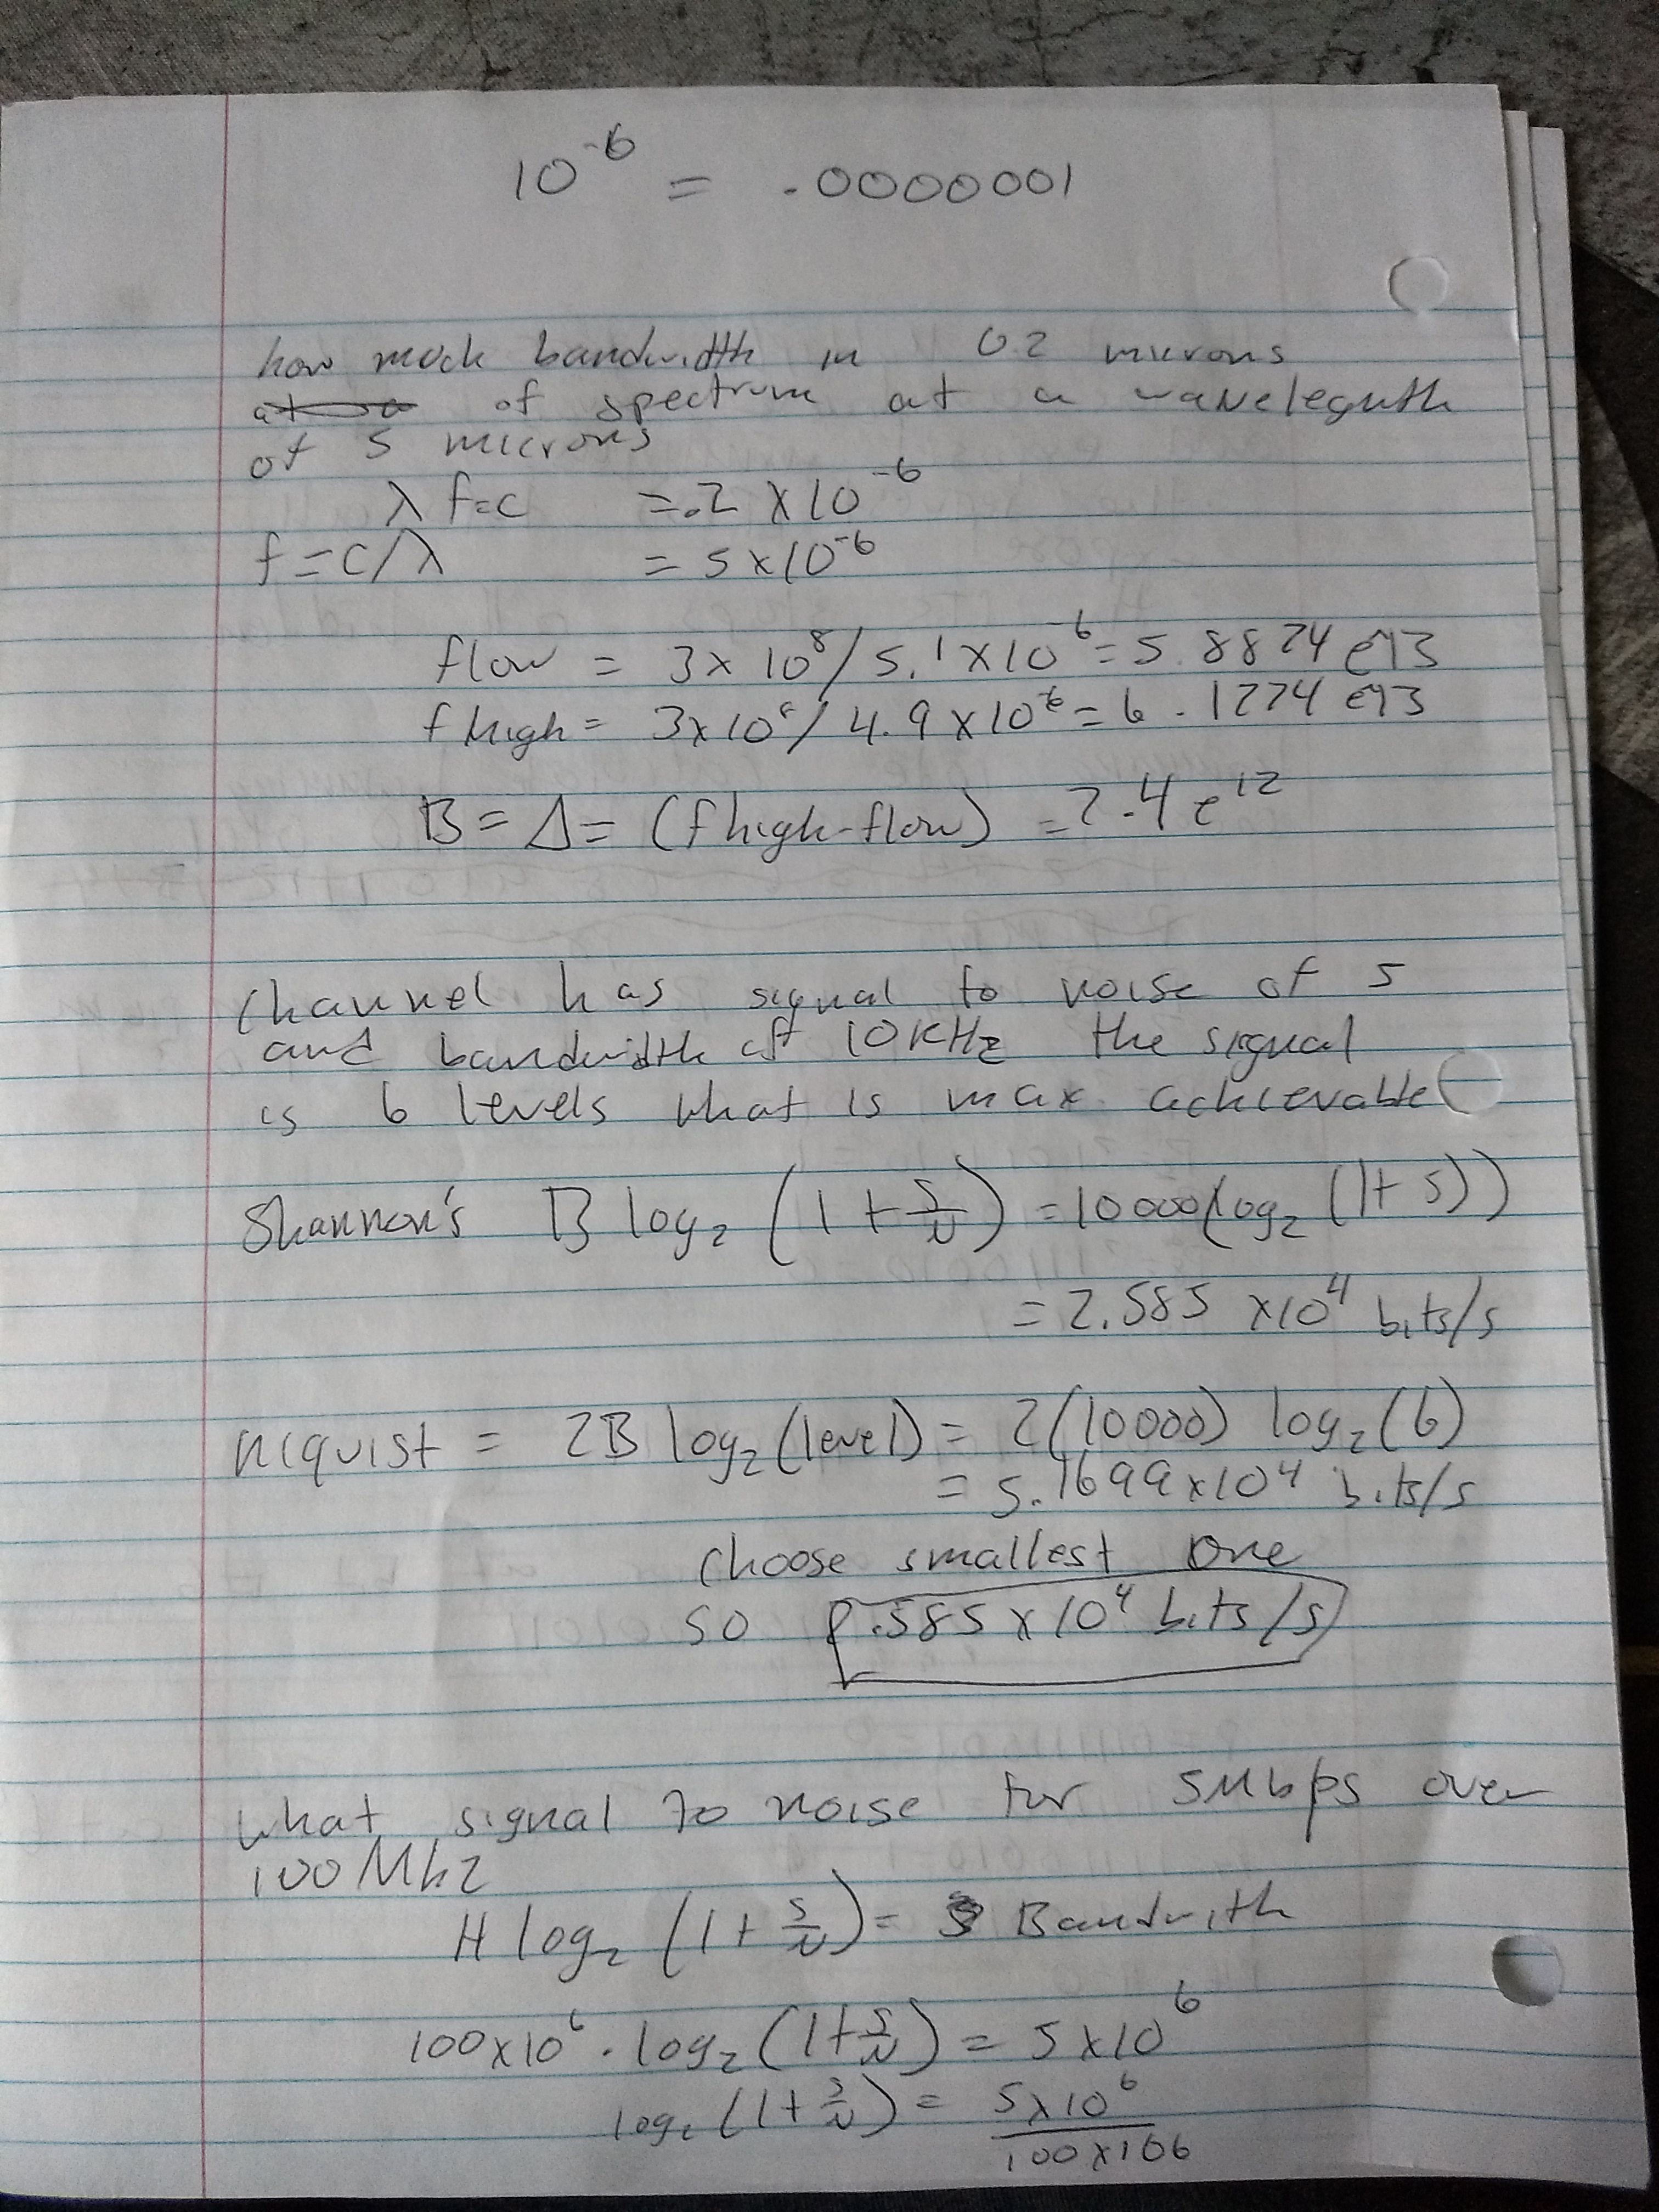 10^-6 = .0000001
how much bandwidth in 0.2 microns
of spectrum at a wavelegnth
of 5 microns
λ f=c = .2 x 10^-6
f = c/λ = 5 x 10^-6
flow = 3 x 10^8 / 5.1 x 10^-6 = 5.8824 e13
fhigh = 3x10^8 / 4.9 x 10^-6 = 6.1224 e13
B = Δ = (fhigh-flow) = 2.4 e^12
Channel has signal to noise of 5
and bandwidth of 10 KHz the signal
is 6 levels what is max achievable
Shannon's B log₂ (1 + S/N) = 10000(log₂ (1+5))
= 2.585 x10^4 bits/s
niquist = 2B log₂(level) = 2(10000) log₂(6)
= 5.1699x10^4 bits/s
choose smallest one
so 2.585 x 10^4 bits/s
what signal to noise for 5Mbps over
100 Mhz
H log₂ (1 + S/N) = Bandwith
100x10^6 · log₂ (1+S/N) = 5 x10^6
log₂ (1 + S/N) = 5x10^6
100x106